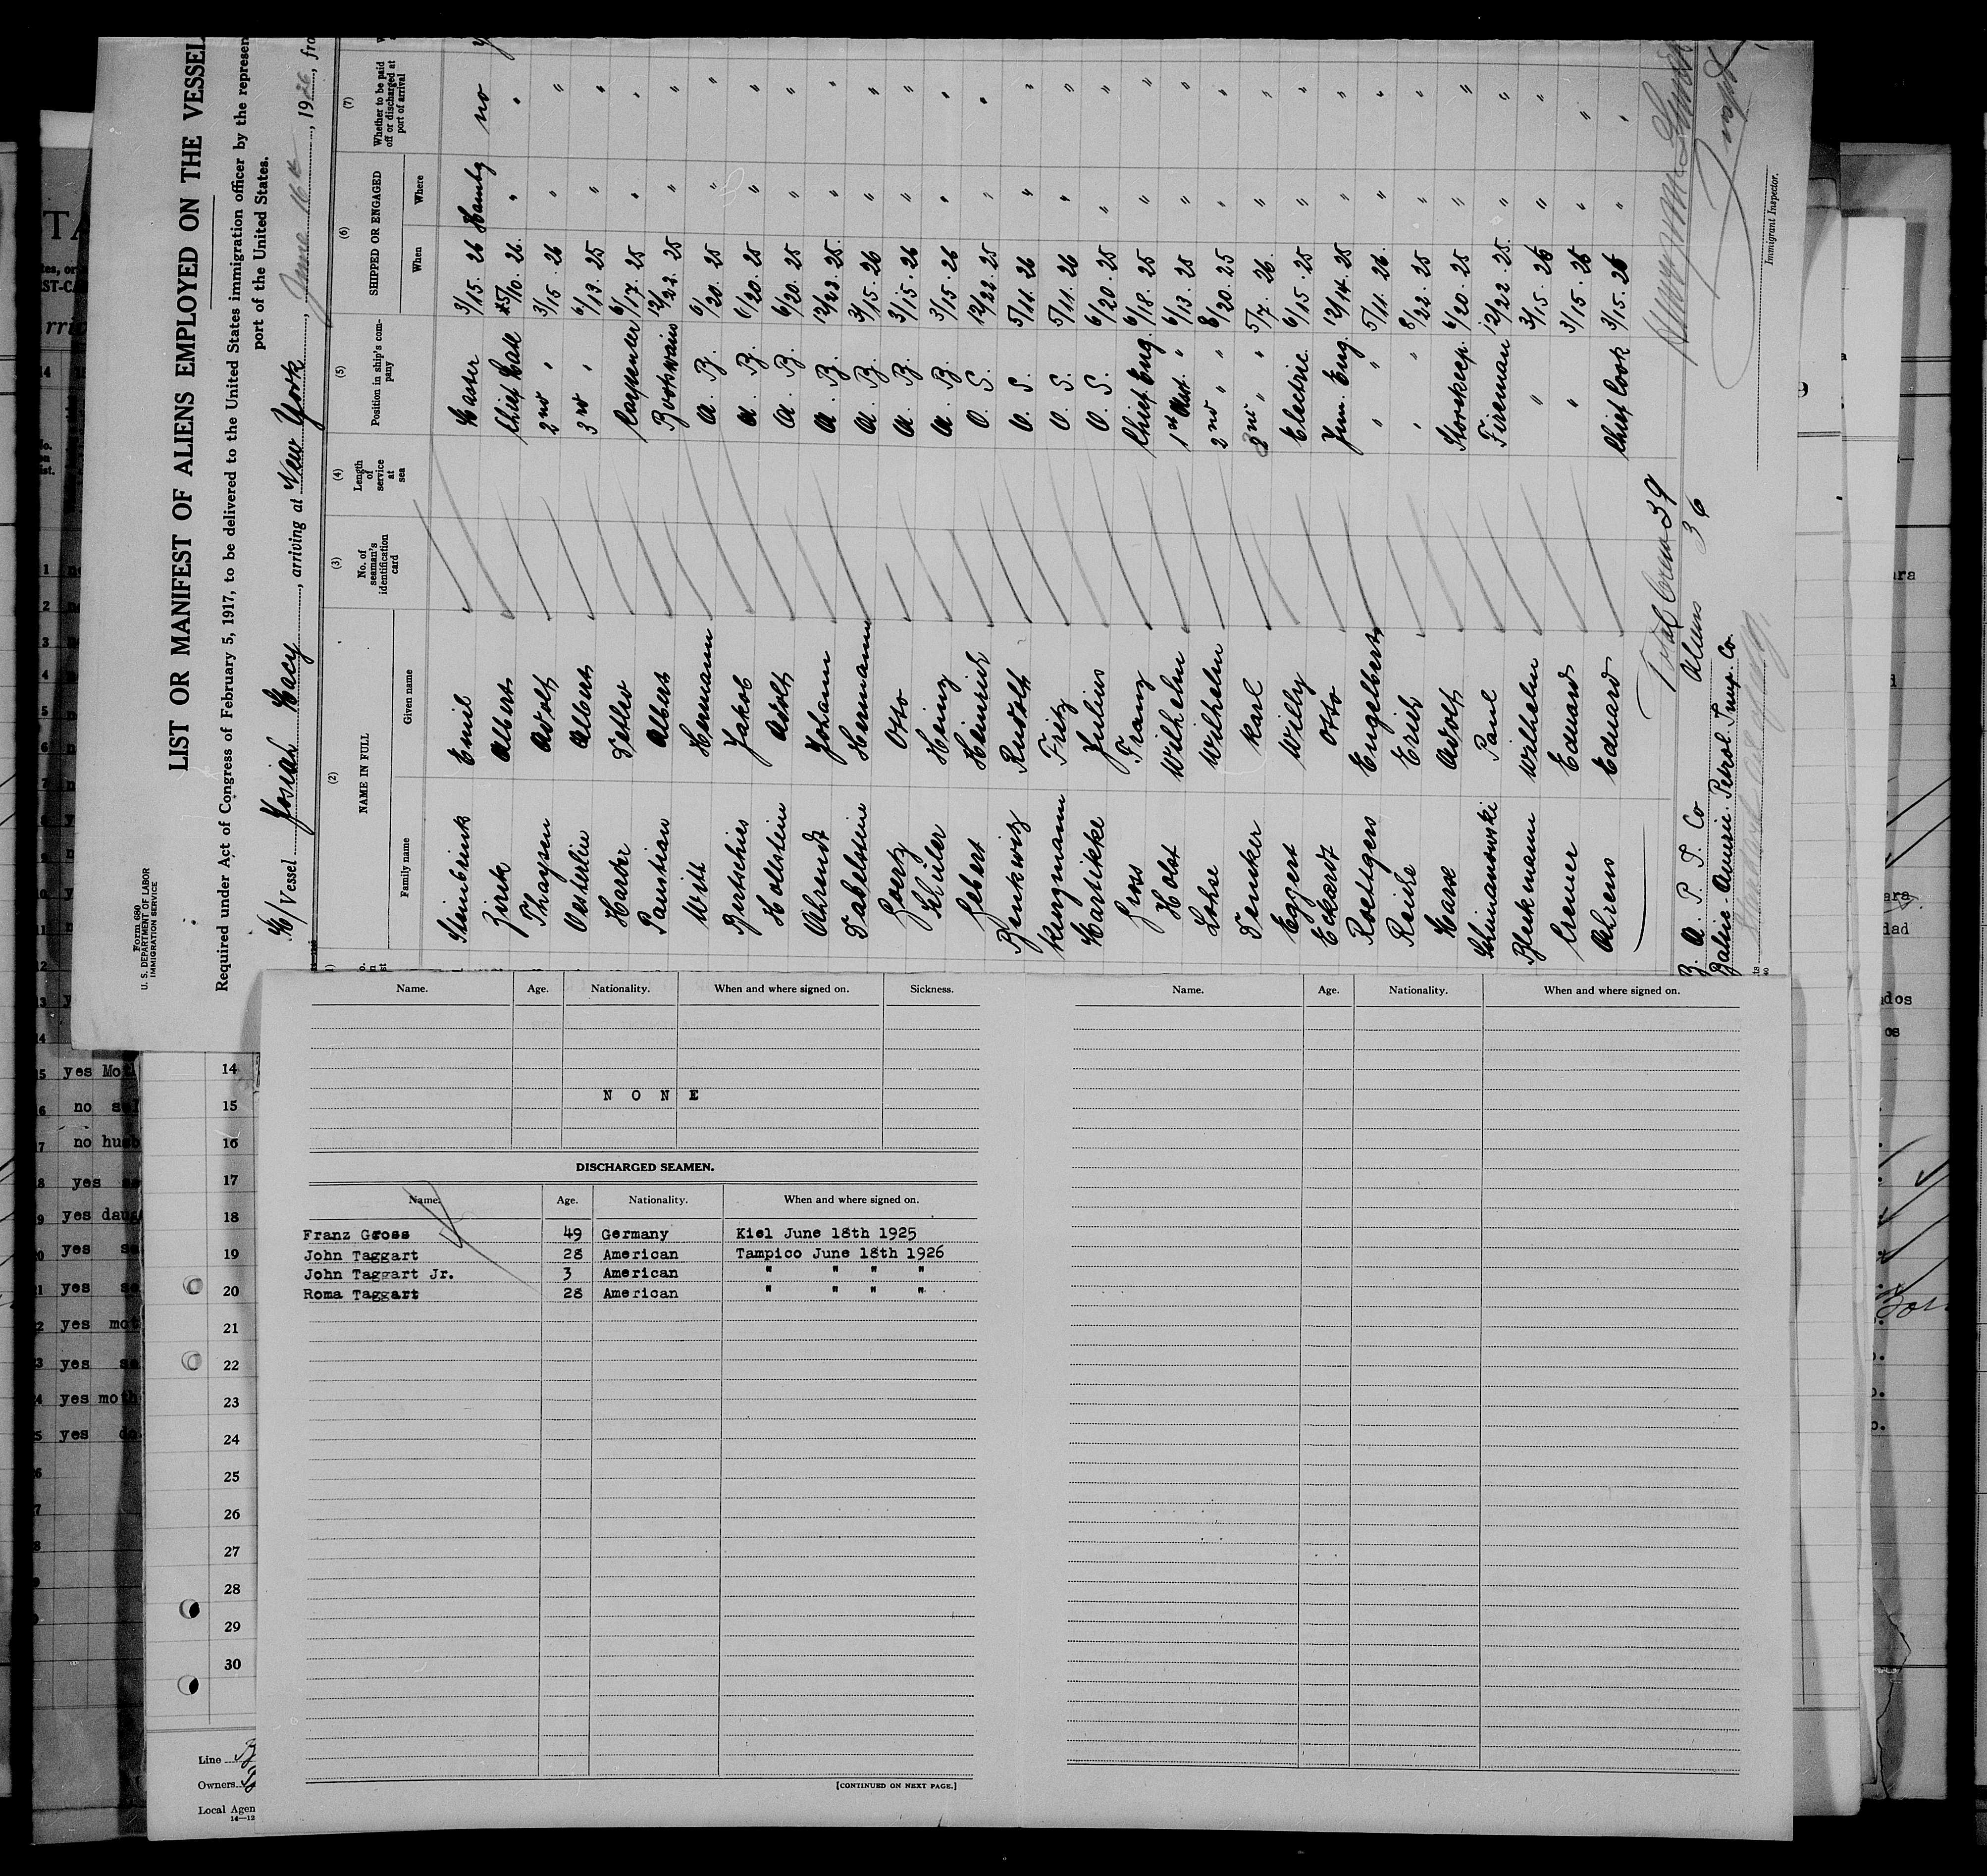 Form 680
U. S. DEPARTMENT OF LABOR
IMMIGRATION SERVICE
LIST OR MANIFEST OF ALIENS EMPLOYED ON THE VESSEL
Required under Act of Congress of February 5, 1917, to be delivered to the United States immigration officer by the represen
port of the United States.
M/Vessel Josiah Macy, arriving at New York, June 16th, 1926, fro
(2) (3) (4) (5) (6) (7)
NAME IN FULL No. of seaman's identification card Length of service at sea Position in ship's company SHIPPED OR ENGAGED Whether to be paid off or discharged at port of arrival
Family name Given name When Where
Steinbrink Emil Master 3/15. 26 Hambg no
Zirck Albert Chief Mate 26. " "
Thaysen Adolf 2nd " 3/15. 26 " "
Oesterlin Albert 3rd " 6/13. 25 " "
Harder Detlev Carpenter 6/17. 25 " "
Paustian Albert Bootswain 12/22. 25 " "
Witt Hermann A. B. 6/20. 25 " "
Bertschies Jakob A. B. 6/20. 25 " "
Holstein Adolf A. B. 6/20. 25 " "
Ahrendt Johann A. B. 12/22. 25. " "
Dabelstein Hermann A. B. 3/15. 26 " "
Goertz Otto A. B. 3/15. 26 " "
Schüler Heinz A. B. 3/15. 26 " "
Gebert Heinrich O. S. 12/22. 25 " "
Benkwitz Rudolf O. S. 5/11. 26 " "
Kungmann Fritz O. S. 5/11. 26 " "
Martikke Julius O. S. 6/20. 25 " "
Gross Franz Chief Eng. 6/18. 25 " "
Holst Wilhelm 1st Asst. " 6/13. 25 " "
Lohse Wilhelm 2nd " " 8/20. 25 " "
Denker Karl 3rd " " 5/7. 26. " "
Eggert Willy Electric. 6/15. 25 " "
Eckardt Otto Jun. Eng. 12/14. 25 " "
Roetgers Engelbert " " 5/11. 26. " "
Reiche Erich " " 8/22. 25 " "
Maak Adolf Storekeep. 6/20. 25 " "
Schimanowski Paul Fireman 12/22. 25. " "
Bleekmann Wilhelm " 3/15. 26 " "
Cremer Eduard " 3/15. 26 " "
Ahrens Eduard Chief Cook 3/15. 26 " "
Total Crew 39
B. A. P. I. Co Aliens 36
Baltic-Americ. Petrol. Imp. Co.
Immigrant Inspector.
Name. Age. Nationality. When and where signed on. Sickness.
NONE
DISCHARGED SEAMEN.
Name. Age. Nationality. When and where signed on.
Franz Gross 49 Germany Kiel June 18th 1925
John Taggart 28 American Tampico June 18th 1926
John Taggart Jr. 3 American " " " "
Roma Taggart 28 American " " " "
[CONTINUED ON NEXT PAGE.]
Name. Age. Nationality. When and where signed on.
14
15
16
17
18
19
20
21
22
23
24
25
26
27
28
29
30
Line
Owners
Local Agen
14—12
yes
no
no
yes
yes
yes
yes
yes
yes
yes moth
yes